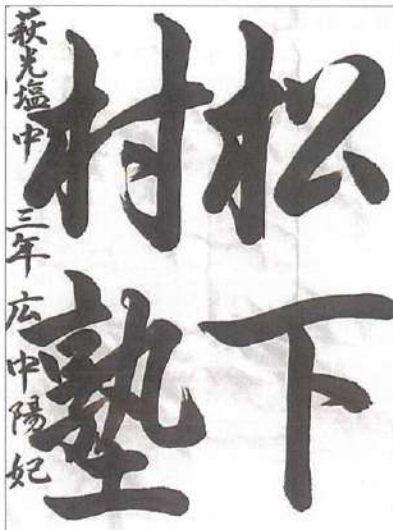 松下
村塾
萩光塩中 三年 広中陽妃